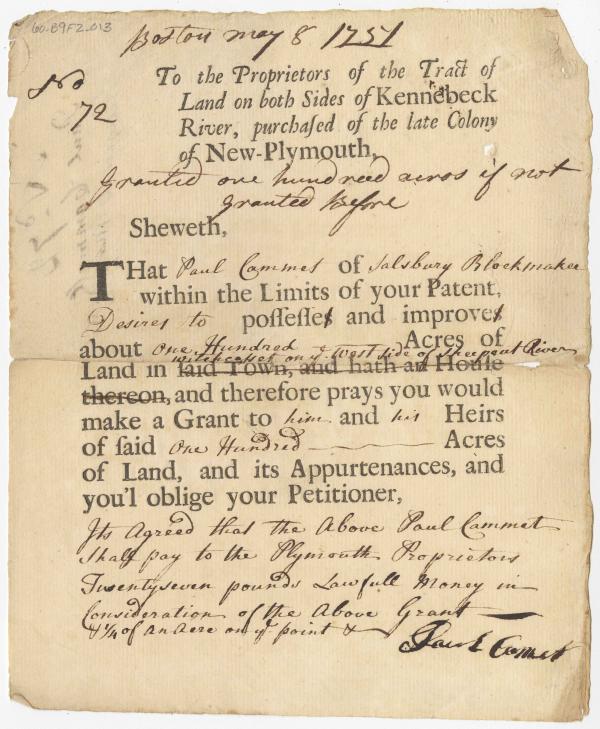 60-B9F2-013
Boston may 8 1751
No
72
To the Proprietors of the Tract of
Land on both Sides of Kennebeck
River, purchaſed of the late Colony
of New-Plymouth,
Granted one hundred acros if not
Granted Before
Sheweth,
THat Paul Cammet of Salsbury Blockmaker
within the Limits of your Patent,
Desires to poſſeſſes and improves
about One Hundred Acres of
witchcasset on ye. West side of Sheepcut River
Land in ſaid Town, and hath an Houſe
thereon, and therefore prays you would
make a Grant to him and his Heirs
of ſaid One Hundred Acres
of Land, and its Appurtenances, and
you'l oblige your Petitioner,
Its Agreed that the Above Paul Cammet
Shall pay to the Plymouth Proprietors
Twentyseven pounds Lawfull Money in
Consideration of the Above Grant
& 1/4 of an Acre on ye. point &
Paul Cammet